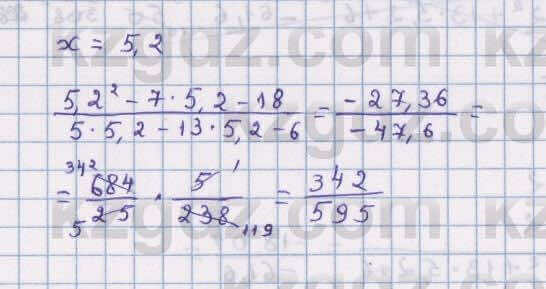 x = 5,2
(5,2² - 7 · 5,2 - 18) / (5 · 5,2 - 13 · 5,2 - 6) = (-27,36) / (-47,6) =
= 684/25 · 5/238 = 342/595
342 5 1 119
kzgdz.com